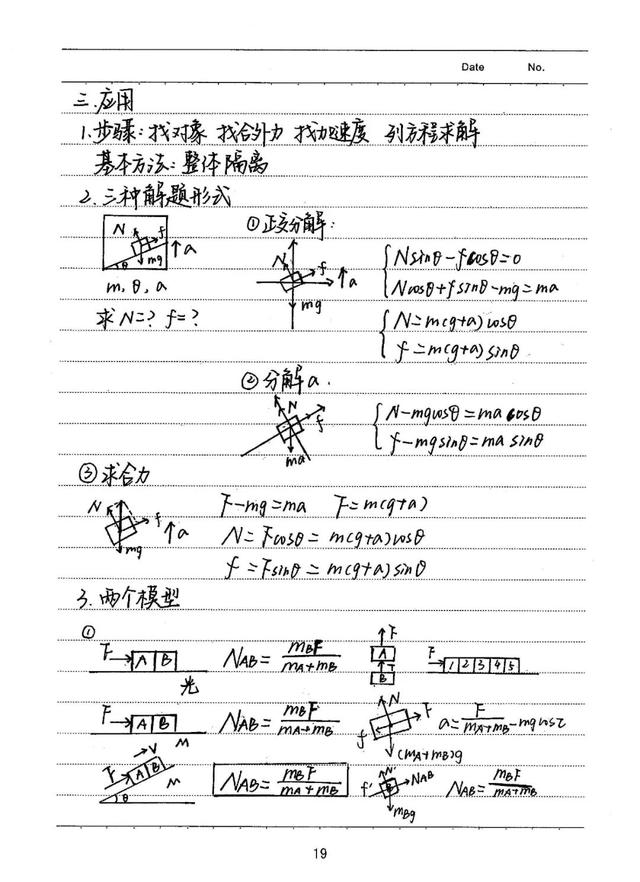 Date No.
三.应用
1.步骤:找对象 找合外力 找加速度 列方程求解
基本方法:整体 隔离
2.三种解题形式
N f mg θ ↑a
m, θ, a
求 N=? f=?
①正交分解:
N f mg ↑a
Nsinθ-fcosθ=0
Ncosθ+fsinθ-mg=ma
N=m(g+a)cosθ
f=m(g+a)sinθ
②分解a.
N f ma
N-mgcosθ=ma cosθ
f-mgsinθ=ma sinθ
③求合力
N f mg ↑a
F-mg=ma F=m(g+a)
N=Fcosθ=m(g+a)cosθ
f=Fsinθ=m(g+a)sinθ
3.两个模型
①
F A B 光
NAB= mBF/mA+mB
F A T B
F 1 2 3 4 5
F A B M
NAB= mBF/mA+mB
N F f (mA+mB)g
a= F/mA+mB -mgcos
F A B V M θ
NAB= mBF/mA+mB
N' NAB f' B mBg
NAB= mBF/mA+mB
19